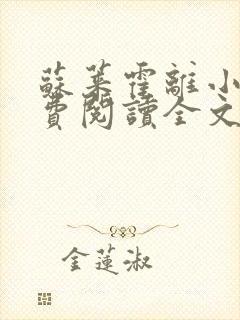 蘇葉霍離小
費閱讀全文
金蓮淑